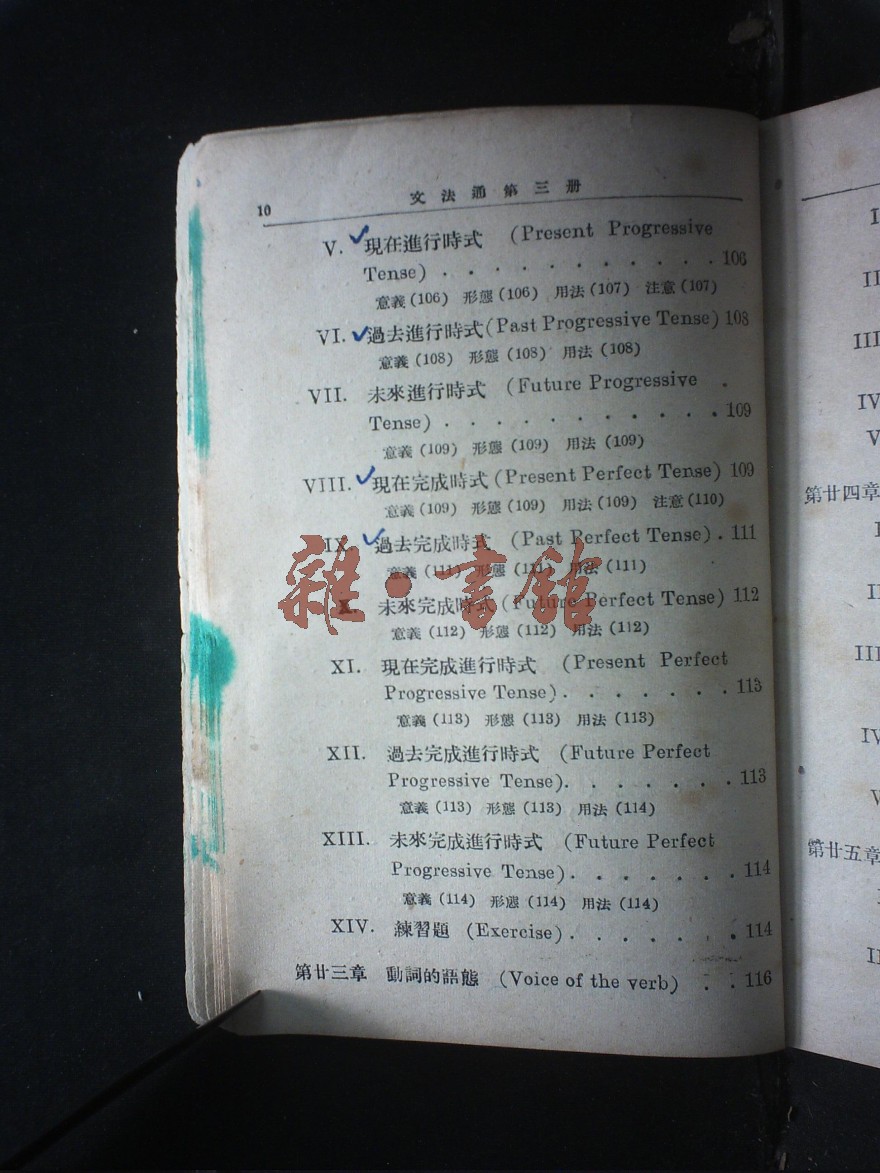 10 文法通第三册
V. 現在進行時式 (Present Progressive
Tense) . . . . . . . . . . . 106
意義 (106) 形態 (106) 用法 (107) 注意 (107)
VI. 過去進行時式 (Past Progressive Tense) 108
意義 (108) 形態 (108) 用法 (108)
VII. 未來進行時式 (Future Progressive
Tense) . . . . . . . . . . . 109
意義 (109) 形態 (109) 用法 (109)
VIII. 現在完成時式 (Present Perfect Tense) 109
意義 (109) 形態 (109) 用法 (109) 注意 (110)
IX. 過去完成時式 (Past Perfect Tense) . 111
意義 (111) 形態 (111) 用法 (111)
X. 未來完成時式 (Future Perfect Tense) 112
意義 (112) 形態 (112) 用法 (112)
雜·書館
XI. 現在完成進行時式 (Present Perfect
Progressive Tense) . . . . . . . 113
意義 (113) 形態 (113) 用法 (113)
XII. 過去完成進行時式 (Future Perfect
Progressive Tense) . . . . . . . 113
意義 (113) 形態 (113) 用法 (114)
XIII. 未來完成進行時式 (Future Perfect
Progressive Tense) . . . . . . . 114
意義 (114) 形態 (114) 用法 (114)
XIV. 練習題 (Exercise) . . . . . . . 114
第廿三章 動詞的語態 (Voice of the verb) . . 116
III
IV
V
第廿四章
III
IV
V
第廿五章